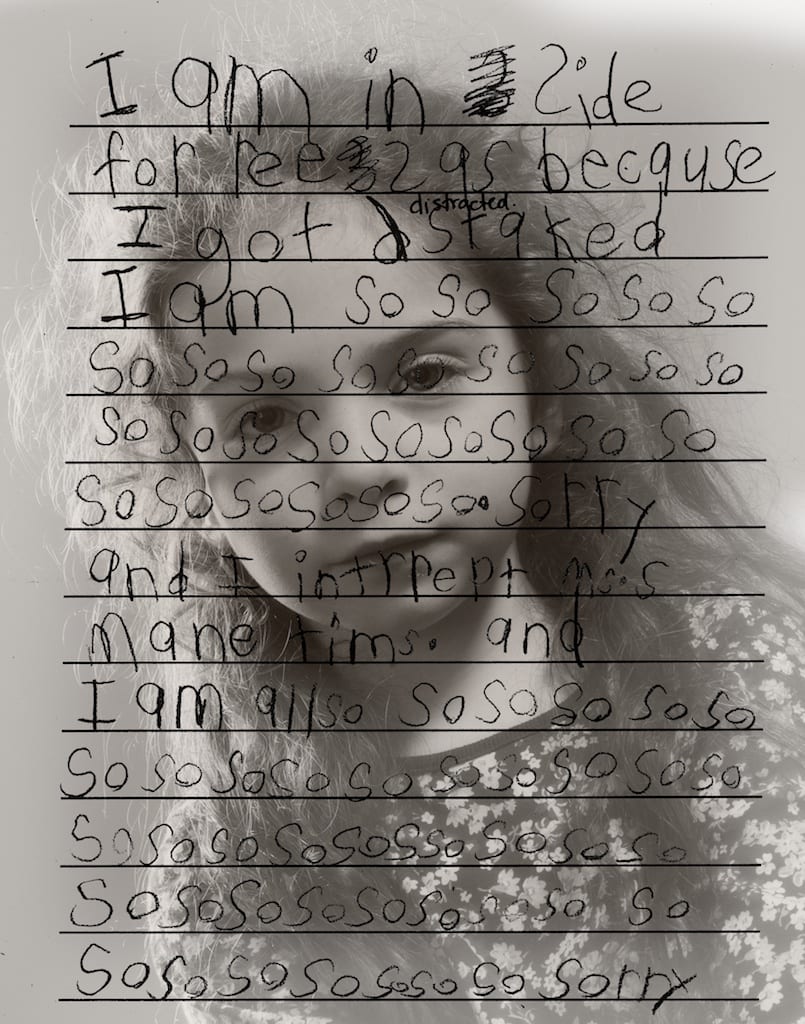 I am in Side
for rees as because
distracted.
I got dstaked
I am so so So So So
So So So So So So So So So
so So So So So So So So So
So So So So So So. Sorry
and I intrrept
mane tims. and
I am allso So So So So So
So So So So So So So So So So
So So So So So SSo So So So
So So So So So So so so So
So So So So so so so Sorry